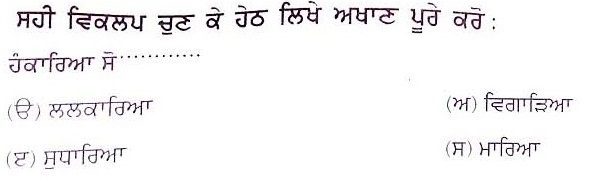 ਸਹੀ ਵਿਕਲਪ ਚੁਣ ਕੇ ਹੇਠ ਲਿਖੇ ਅਖਾਣ ਪੂਰੇ ਕਰੋ :
ਹੰਕਾਰਿਆ ਸੋ............
(ੳ) ਲਲਕਾਰਿਆ (ਅ) ਵਿਗਾੜਿਆ
(ੲ) ਸੁਧਾਰਿਆ (ਸ) ਮਾਰਿਆ